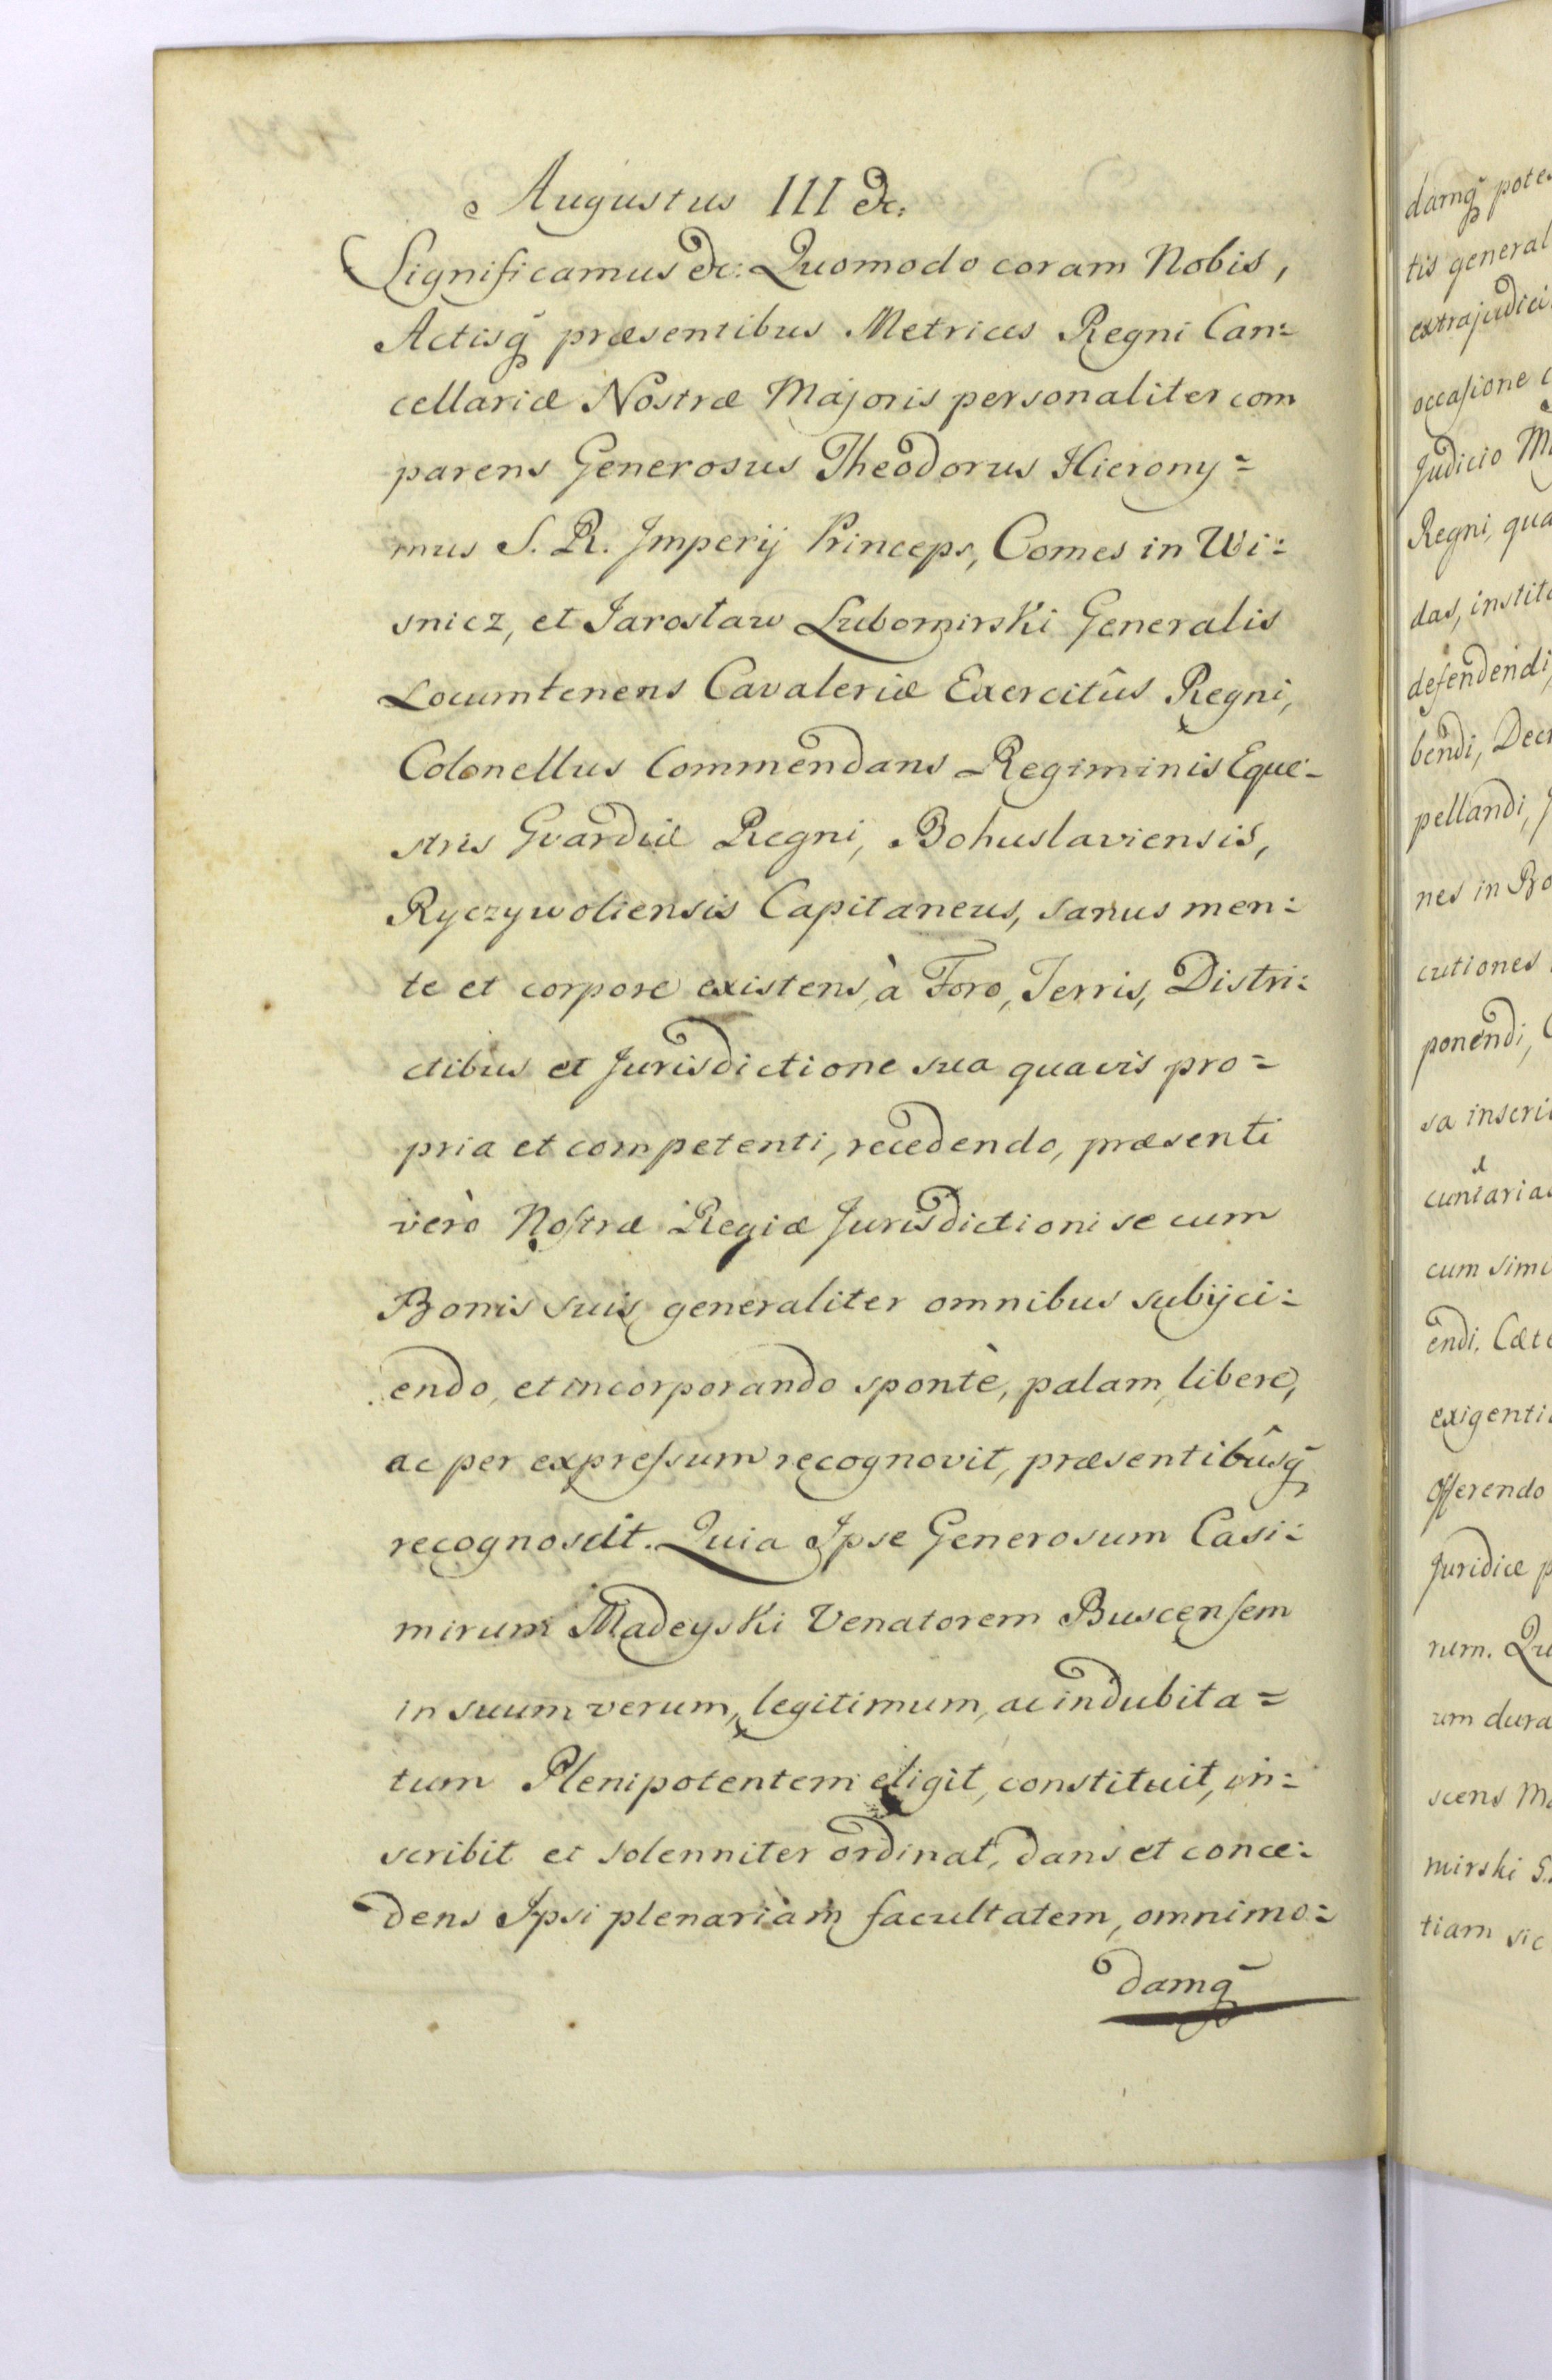 Augustus III &c.
Significamus &c: Quomodo coram Nobis,
Actisq̃ præsentibus Metrices Regni Can=
cellariæ Nostræ Majoris personaliter com
parens Generosus Theodorus Hierony=
mus S. R. Imperij Princeps, Comes in Wi=
snicz, et Jarosław Lubomirski Generalis
Locumtenens Cavaleriæ Exercitûs Regni,
Colonellus Commendans Regiminis Eque=
stris Gvardiæ Regni, Bohuslaviensis,
Ryczywoliensis Capitaneus, sanus men=
te et corpore existens, à Foro, Terris, Distri=
ctibus et Jurisdictione sua quavis pro=
pria et competenti, recedendo, præsenti
verò Nostræ Regiæ Jurisdictioni se cum
Bonis suis generaliter omnibus subijci=
endo, et incorporando spontè, palam, libere,
ac per expressum recognovit, præsentibûsq̃
recognoscit. Quia Ipse Generosum Casi=
mirum Madeyski Venatorem Buscensem
in suum verum, legitimum, ac indubita=
tum Plenipotentem eligit, constituit, in=
scribit et solenniter ordinat, dans et conce=
dens Ipsi plenariam facultatem, omnimo=
damq̃
damq̃
tis general
extrajudici
occasione
Judicio
Regni, qua
das,
defendendi,
bendi,
pellandi,
nes in
cutiones
ponendi,
sa
cum
endi.
exigenti
offerendo
Juridicæ
rum.
um dura
scens
mirski
tiam sic